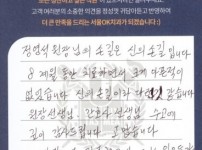 고객 여러분의 소중한 의견을 정성껏 귀담아듣고 반영하여
더 큰 만족을 드리는 서울OK치과가 되겠습니다:)
정연석 원장님의 손길은 신의 손길 입니다
8개월 동안 치료하면서 크게 아픈적이
없었습니다 신의 손길이라 다
원장선생님 간호사 선생님 수고에
깊이 감사드립니다 고맙습니다